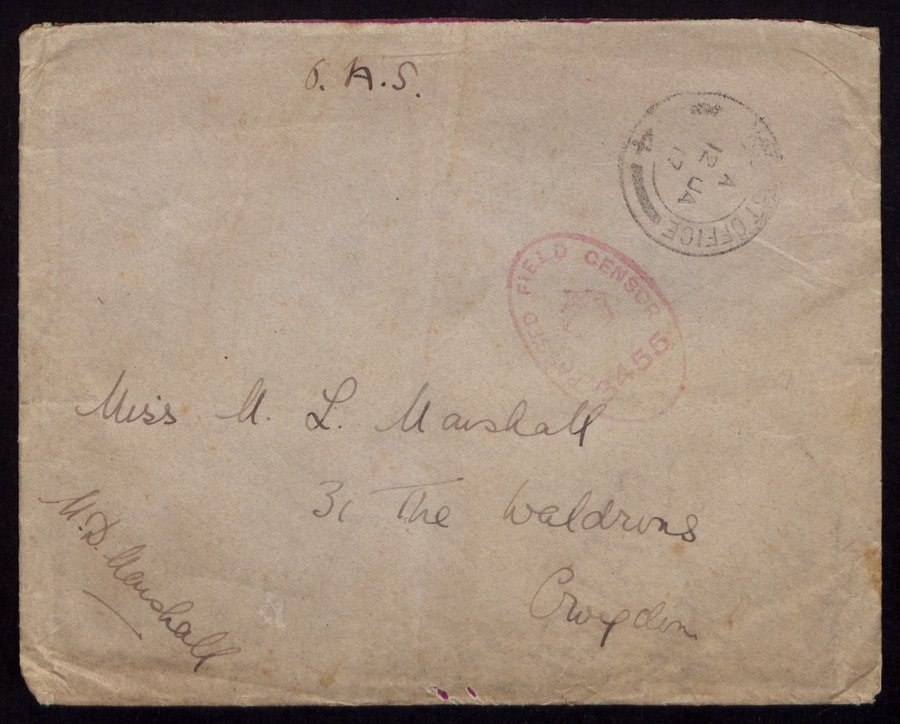 O. A. S.
ST OFFICE
A
12 JA
17
PASSED FIELD CENSOR
3455
Miss M. L. Marshall
31 The Waldrons
Croydon
M. D. Marshall